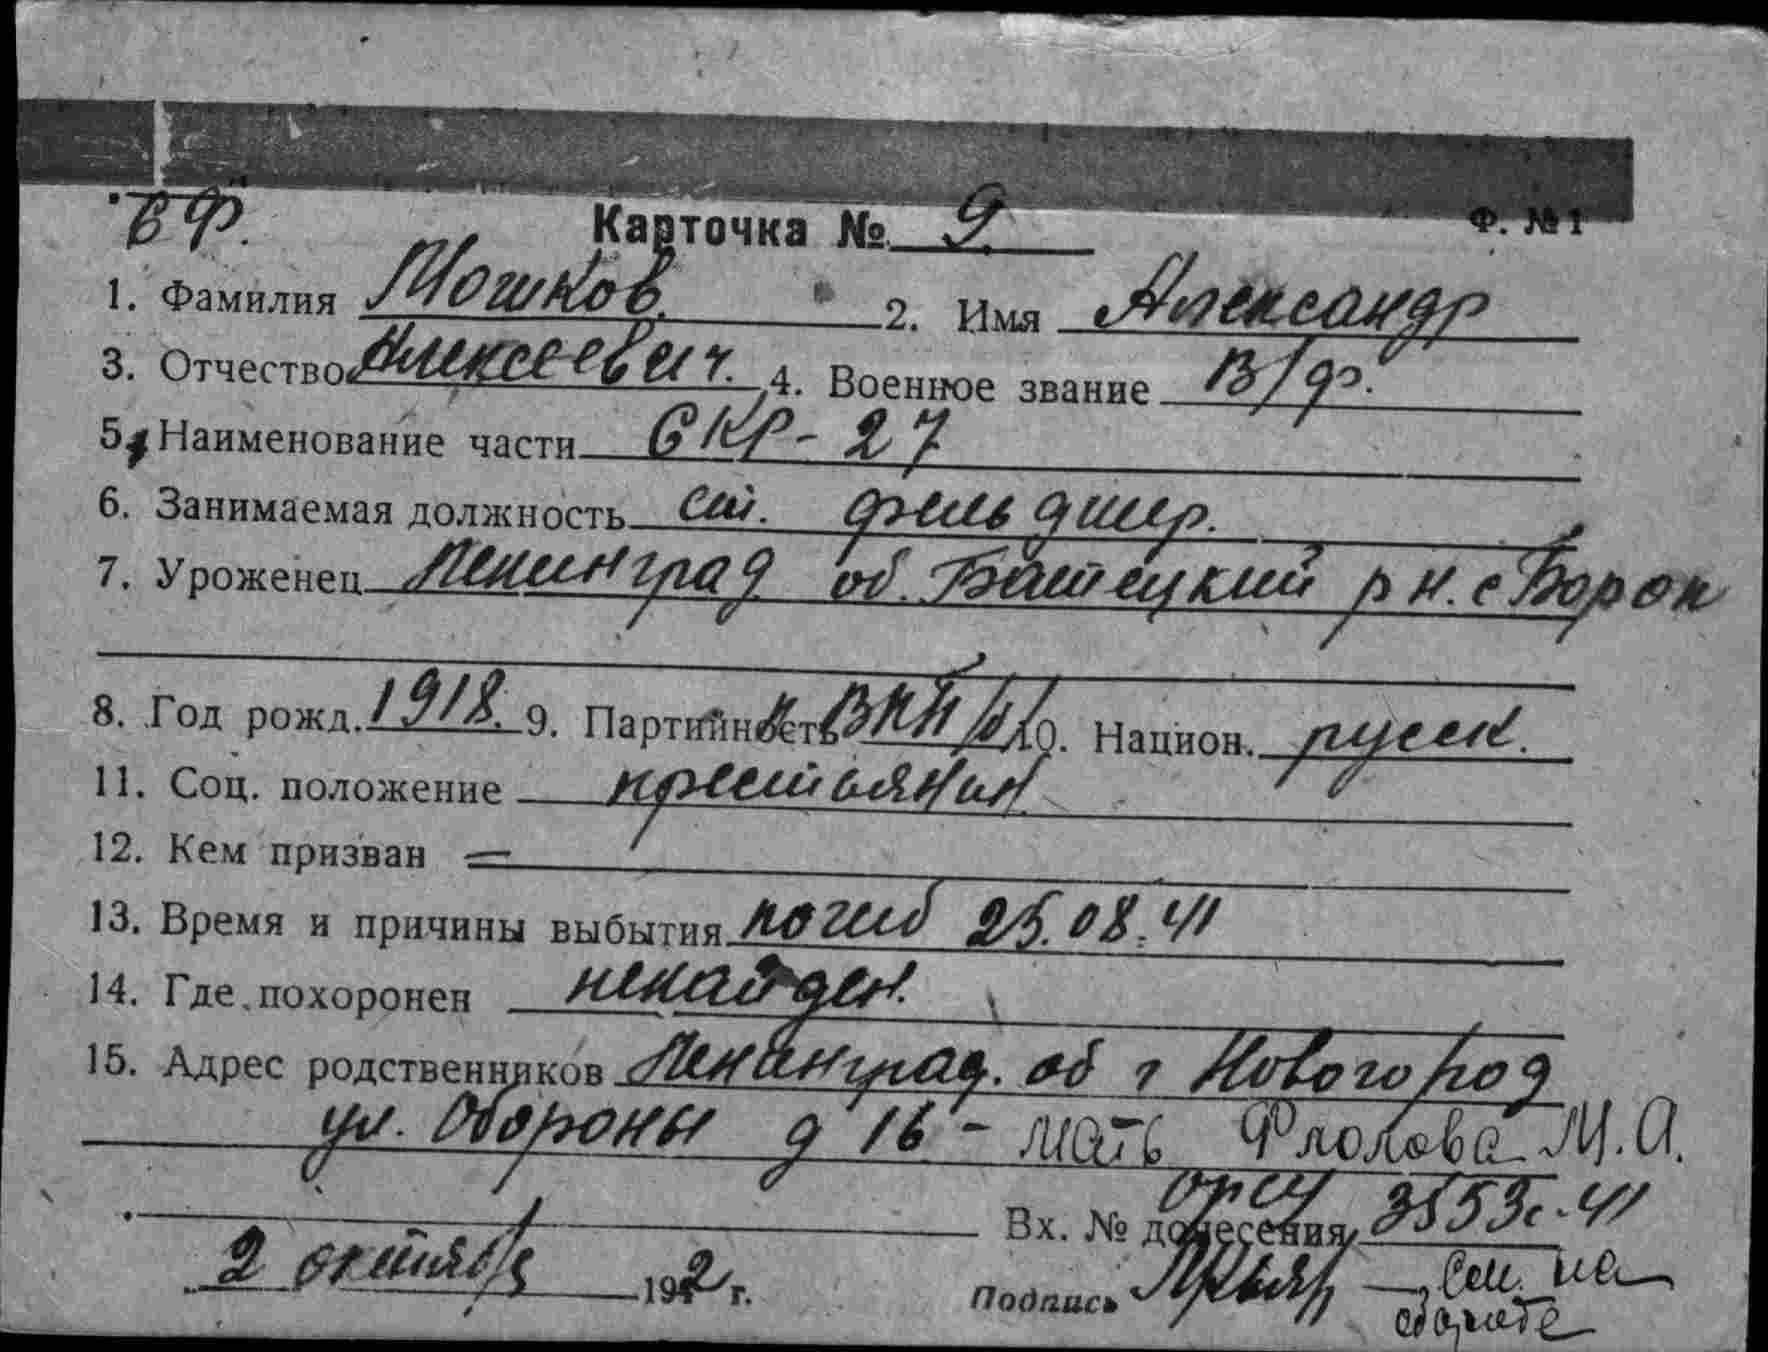 СФ. Карточка № 9. Ф. №1
1. Фамилия Мошков. 2. Имя Александр
3. Отчество Алексеевич. 4. Военное звание В/ф.
5. Наименование части СКР-27
6. Занимаемая должность ст. фельдшер.
7. Уроженец Ленинград об. Батецкий р н. с Борок
8. Год рожд. 1918. 9. Партийность к ВКП/б/ 10. Национ. русск.
11. Соц. положение крестьянин
12. Кем призван =
13. Время и причины выбытия погиб 25.08.41
14. Где похоронен ненайден.
15. Адрес родственников Ленинград. об г Новогород
ул. Обороны д 16 - мать Фролова М.А.
Вх. № донесения 3553с-41
2 октября 1942 г. Подпись См. на
обороте